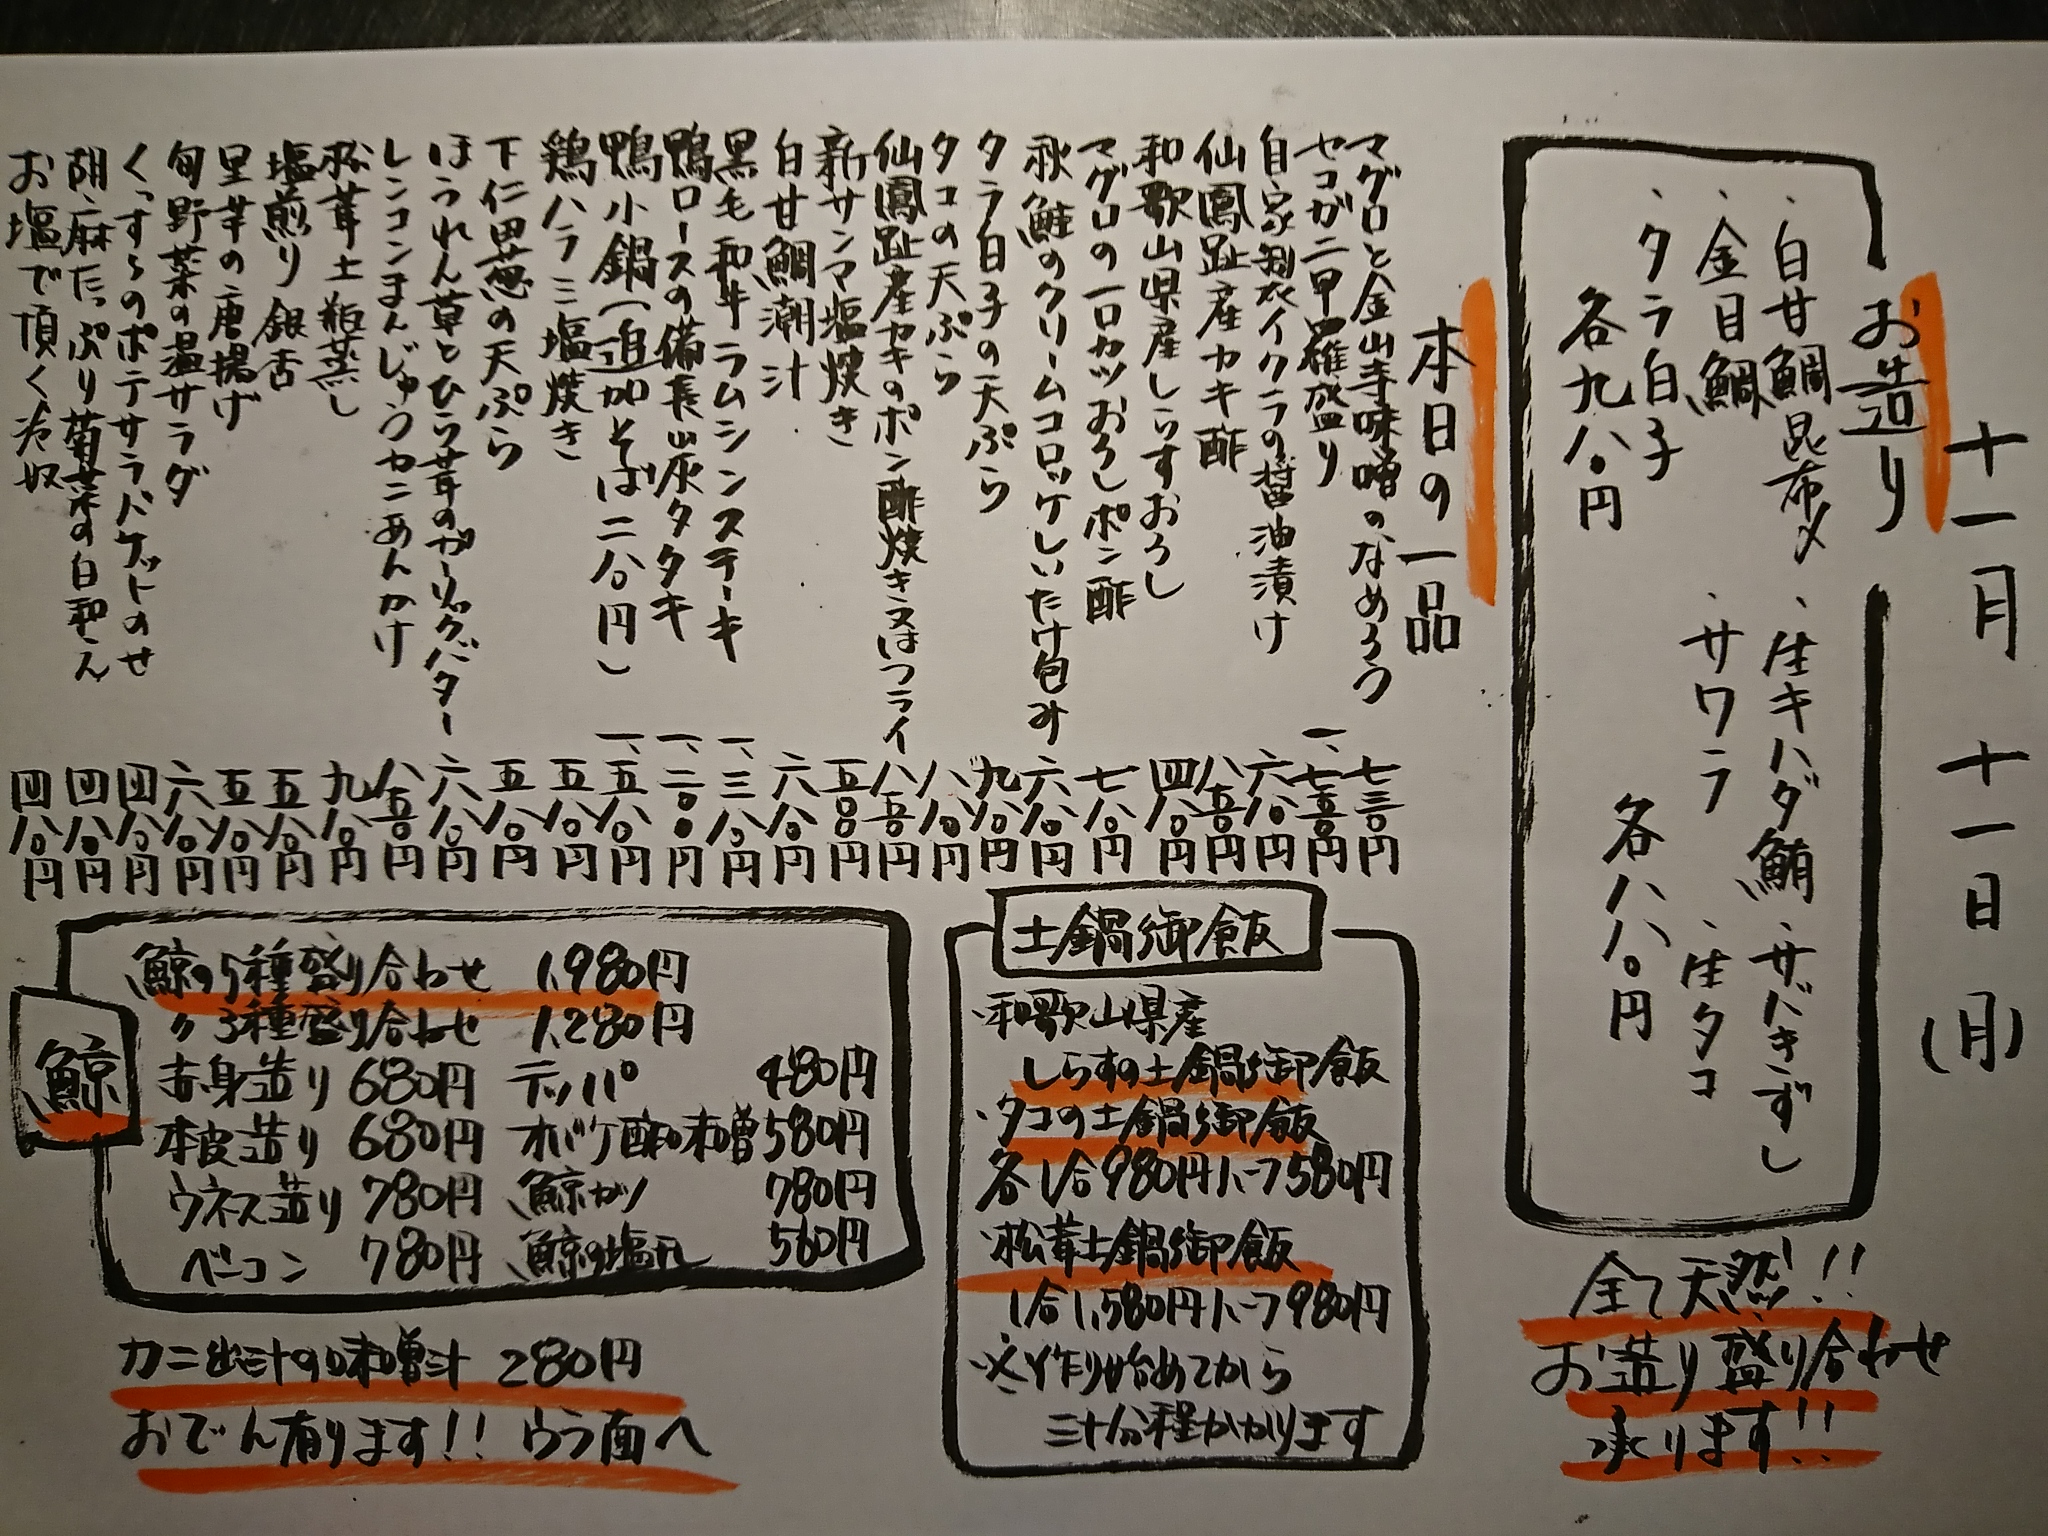 十一月 十一日 (月)
お造り
・白甘鯛昆布〆 ・生キハダ鮪 ・サバきずし
・金目鯛 ・サワラ ・生タコ
・タラ白子
各九八〇円 各八八〇円
全て天然!!
お造り盛り合わせ
承ります!!
本日の一品
マグロと金山寺味噌のなめろう 七三〇円
セコガニ甲羅盛り 一、七五〇円
自家製イクラの醤油漬け 六八〇円
仙鳳趾産カキ酢 八五〇円
和歌山県産しらすおろし 四八〇円
マグロの一口カツおろしポン酢 七八〇円
秋鮭のクリームコロッケしいたけ包み 六八〇円
タラ白子の天ぷら 九八〇円
タコの天ぷら 八八〇円
仙鳳趾産カキのポン酢焼き又はフライ 八五〇円
新サンマ塩焼き 五〇〇円
白甘鯛潮汁 六八〇円
黒毛和牛ラムシンステーキ 一、三八〇円
鴨ロースの備長炭タタキ 一、二〇〇円
鴨小鍋(追加そば二八〇円) 一、五八〇円
鶏ハラミ塩焼き 五八〇円
下仁田葱の天ぷら 五八〇円
ほうれん草とひら茸のガーリックバター 六八〇円
レンコンまんじゅうカニあんかけ 八五〇円
松茸土瓶蒸し 九八〇円
塩煎り銀杏 五八〇円
里芋の唐揚げ 五八〇円
旬野菜の温サラダ 六八〇円
くっすらのポテサラバケットのせ 四八〇円
胡麻たっぷり菊菜の白和え 四八〇円
お塩で頂く冷奴 四八〇円
土鍋御飯
・和歌山県産
しらすの土鍋御飯
・タコの土鍋御飯
各1合980円ハーフ580円
・松茸土鍋御飯
1合1,580円ハーフ980円
※作り始めてから
三十分程かかります
鯨
鯨の5種盛り合わせ 1,980円
〃3種盛り合わせ 1,280円
赤身造り 680円 テッパ 480円
本皮造り 680円 オバケ酢味噌 580円
ウネス造り 780円 鯨カツ 780円
ベーコン 780円 鯨の塩 560円
カニ出汁の味噌汁 280円
おでん有ります!! ウラ面へ